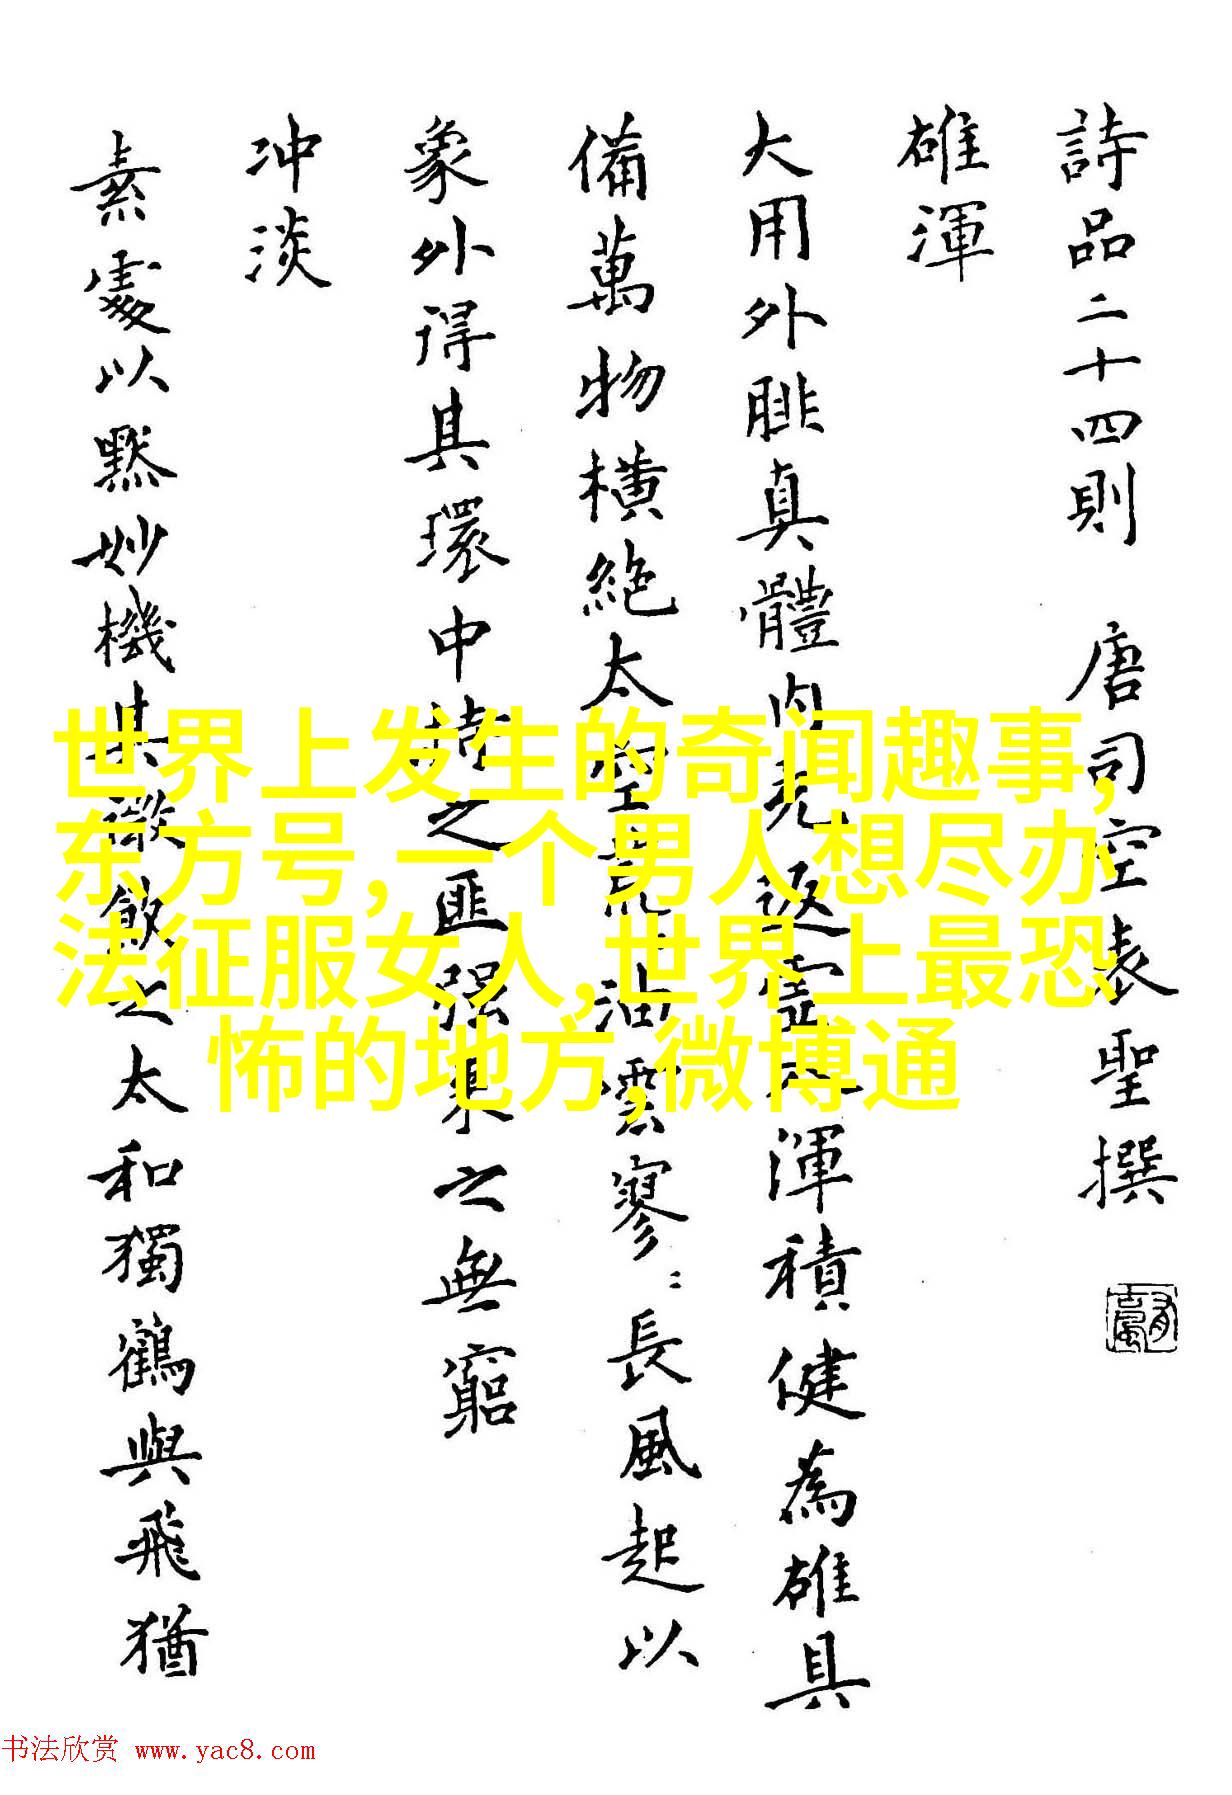 詩品二十四則 唐司空表聖撰
雄渾
大用外腓真體内充返虛入渾積健為雄具
備萬物橫絶太空荒荒油雲寥〻長風起以
象外得其環中持之匪强来之無窮
冲淡
素處以默妙機其微飲之太和獨鶴與飛猶
世界上发生的奇闻趣事,
东方号,一个男人想尽办
法征服女人,世界上最恐
怖的地方,微博通
书法欣赏 www.yac8.com